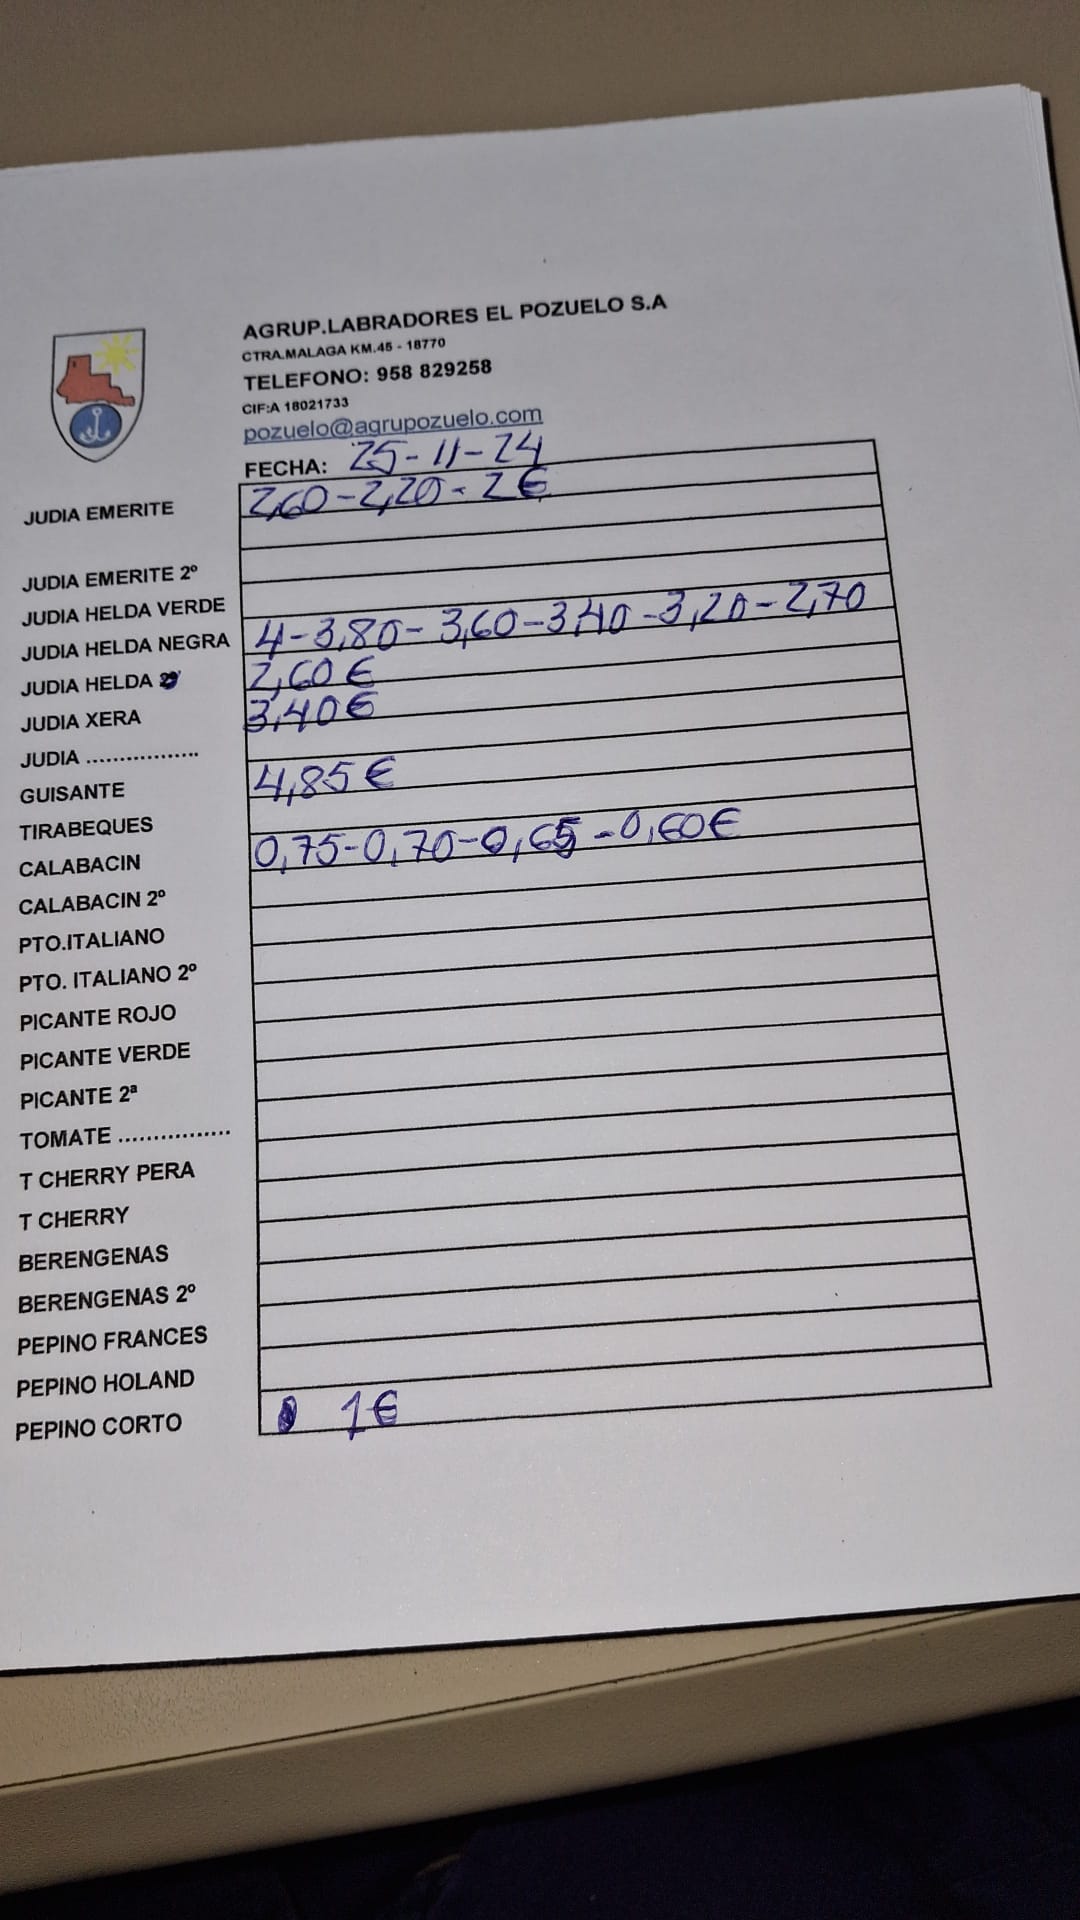 AGRUP.LABRADORES EL POZUELO S.A
CTRA.MALAGA KM.45 - 18770
TELEFONO: 958 829258
CIF:A 18021733
pozuelo@agrupozuelo.com
FECHA: 25-11-24
JUDIA EMERITE 2,60-2,20-2€
JUDIA EMERITE 2º
JUDIA HELDA VERDE
JUDIA HELDA NEGRA 4-3,80-3,60-3,40-3,20-2,70
JUDIA HELDA 2,60€
JUDIA XERA 3,40€
JUDIA .................
GUISANTE 4,85€
TIRABEQUES
CALABACIN 0,75-0,70-0,65-0,60€
CALABACIN 2º
PTO.ITALIANO
PTO. ITALIANO 2º
PICANTE ROJO
PICANTE VERDE
PICANTE 2ª
TOMATE .................
T CHERRY PERA
T CHERRY
BERENGENAS
BERENGENAS 2º
PEPINO FRANCES
PEPINO HOLAND
PEPINO CORTO 1€